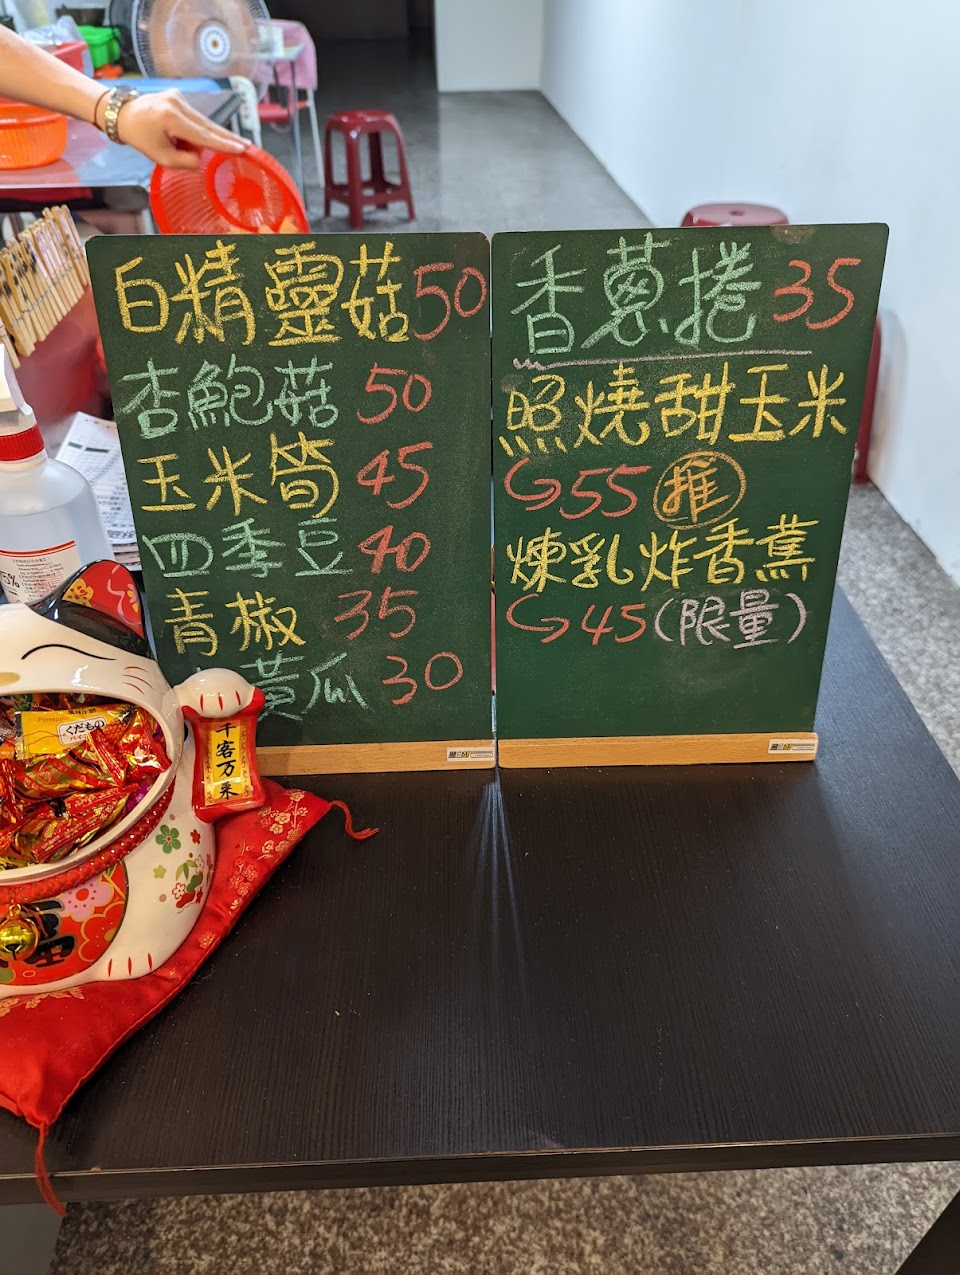 白精靈菇50
杏鮑菇 50
玉米筍 45
四季豆 40
青椒 35
黃瓜 30
香蔥捲 35
照燒甜玉米
55 推
煉乳炸香蕉
45(限量)
千客万来
Pineapple
くだもの
75%